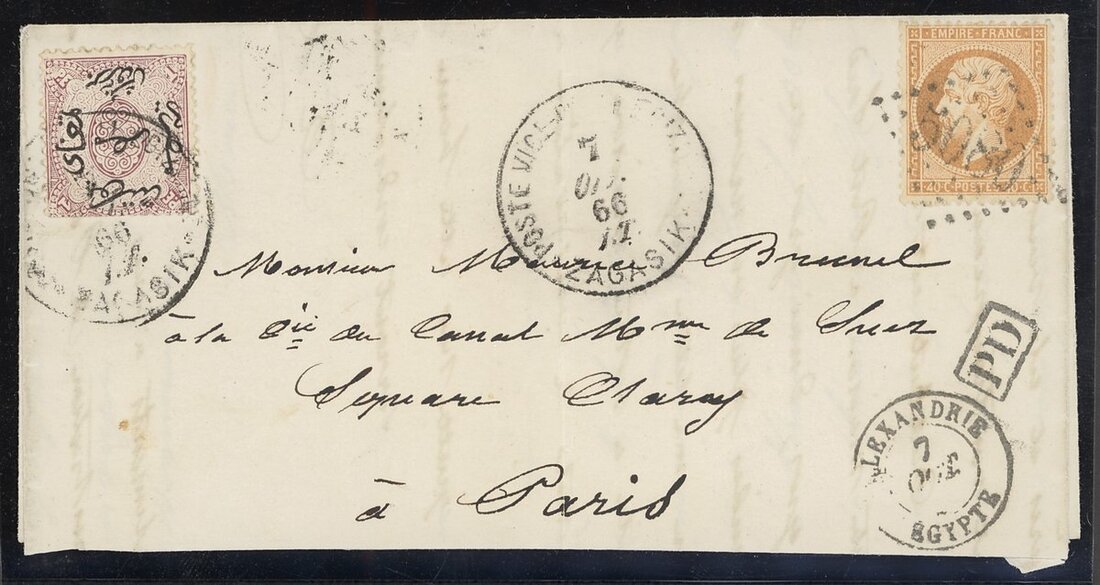 EMPIRE FRANC
40 C POSTES 40 C
5080
POSTE VICE
7
OCT.
66
ZAGASIK
66
ZAGASIK
Monsieur Maurice Brunel
à la Cie du Canal Mme de Suez
Square Clary
à Paris
PD
ALEXANDRIE
7
OCT.
EGYPTE